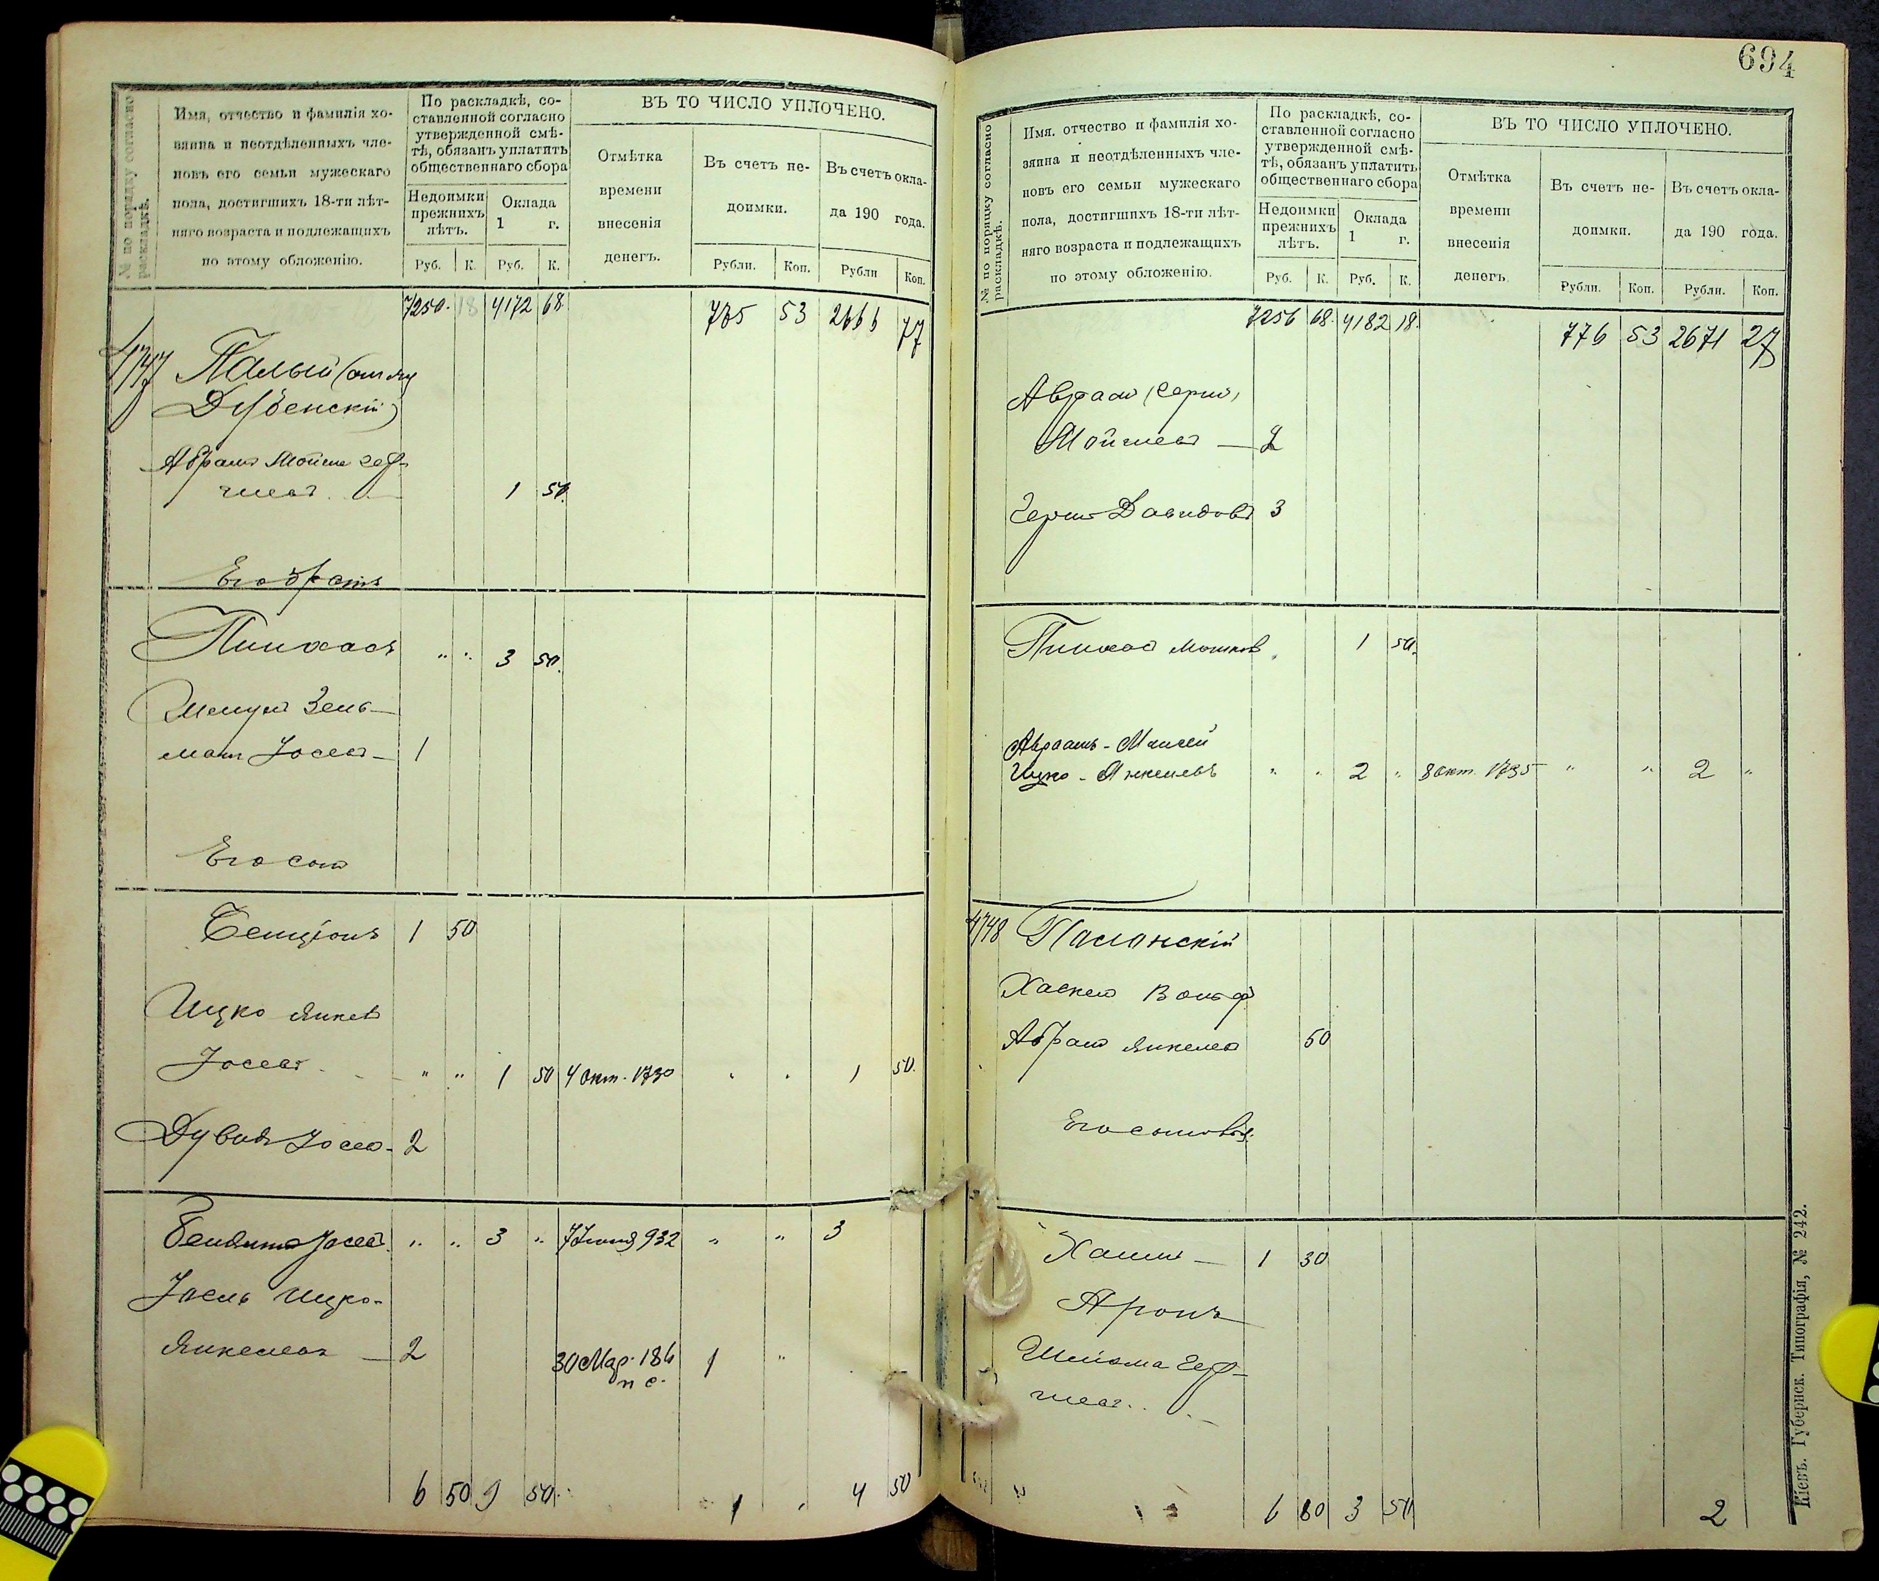 № по порядку согласно раскладкѣ.
Имя, отчество и фамилія хо-
зяина и неотдѣленныхъ чле-
новъ его семьи мужескаго
пола, достигшихъ 18-ти лѣт-
няго возраста и подлежащихъ
по этому обложенію.
По раскладкѣ, со-
ставленной согласно
утвержденной смѣ-
тѣ, обязанъ уплатить
общественнаго сбора
Недоимки
прежнихъ
лѣтъ.
Оклада
1 г.
Руб. К. Руб. К.
ВЪ ТО ЧИСЛО УПЛОЧЕНО.
Отмѣтка
времени
внесенія
денегъ.
Въ счетъ не-
доимки.
Въ счетъ окла-
да 190 года.
Рубли. Коп. Рубли Коп.
7250. 18 4172 68
775 53 2666 77
4747 Палый (
Дубенскій)
Абрамъ Мойше Гер-
шевъ 1 50.
Его братъ
Пинхасъ " " 3 50.
Шмуль Зель-
манъ Іосевъ 1
Его сынъ
Бенціонъ 1 50
Ицко Янкев
Іосевъ " " 1 50 4 Окт. 1730 " " 1 50.
Дувидъ Іосев. 2
Беньяминъ Іосев. " " 3 " 7 Іюня 932 " " 3
Іосль Ицко-
Янкелевъ 2 30 Мар. 186 1 "
п с.
6 50 9 50. 1 4 50
694
№ по порядку согласно раскладкѣ.
Имя, отчество и фамилія хо-
зяина и неотдѣленныхъ чле-
новъ его семьи мужескаго
пола, достигшихъ 18-ти лѣт-
няго возраста и подлежащихъ
по этому обложенію.
По раскладкѣ, со-
ставленной согласно
утвержденной смѣ-
тѣ, обязанъ уплатить
общественнаго сбора
Недоимки
прежнихъ
лѣтъ.
Оклада
1 г.
Руб. К. Руб. К.
ВЪ ТО ЧИСЛО УПЛОЧЕНО.
Отмѣтка
времени
внесенія
денегъ.
Въ счетъ не-
доимки.
Въ счетъ окла-
да 190 года.
Рубли. Коп. Рубли. Коп.
7256 68. 4182 18.
776 53 2671 27
Аврам (Герш)
Мойшевъ 2
Герш Давидовъ 3
Пинхас Мошков. 1 50.
Авраамъ-Моисей
Ицко-Янкелевъ " " 2 " 8 Окт. 1735 " " 2 "
4748 Пасланскій
Хаскел Вольф
Абрам Янкелев 50
Его сыновья.
Хаим 1 30
Аронъ
Шлйома Гер-
шевъ
6 80 3 50 2
Кіевъ. Губернск. Типографія, № 242.